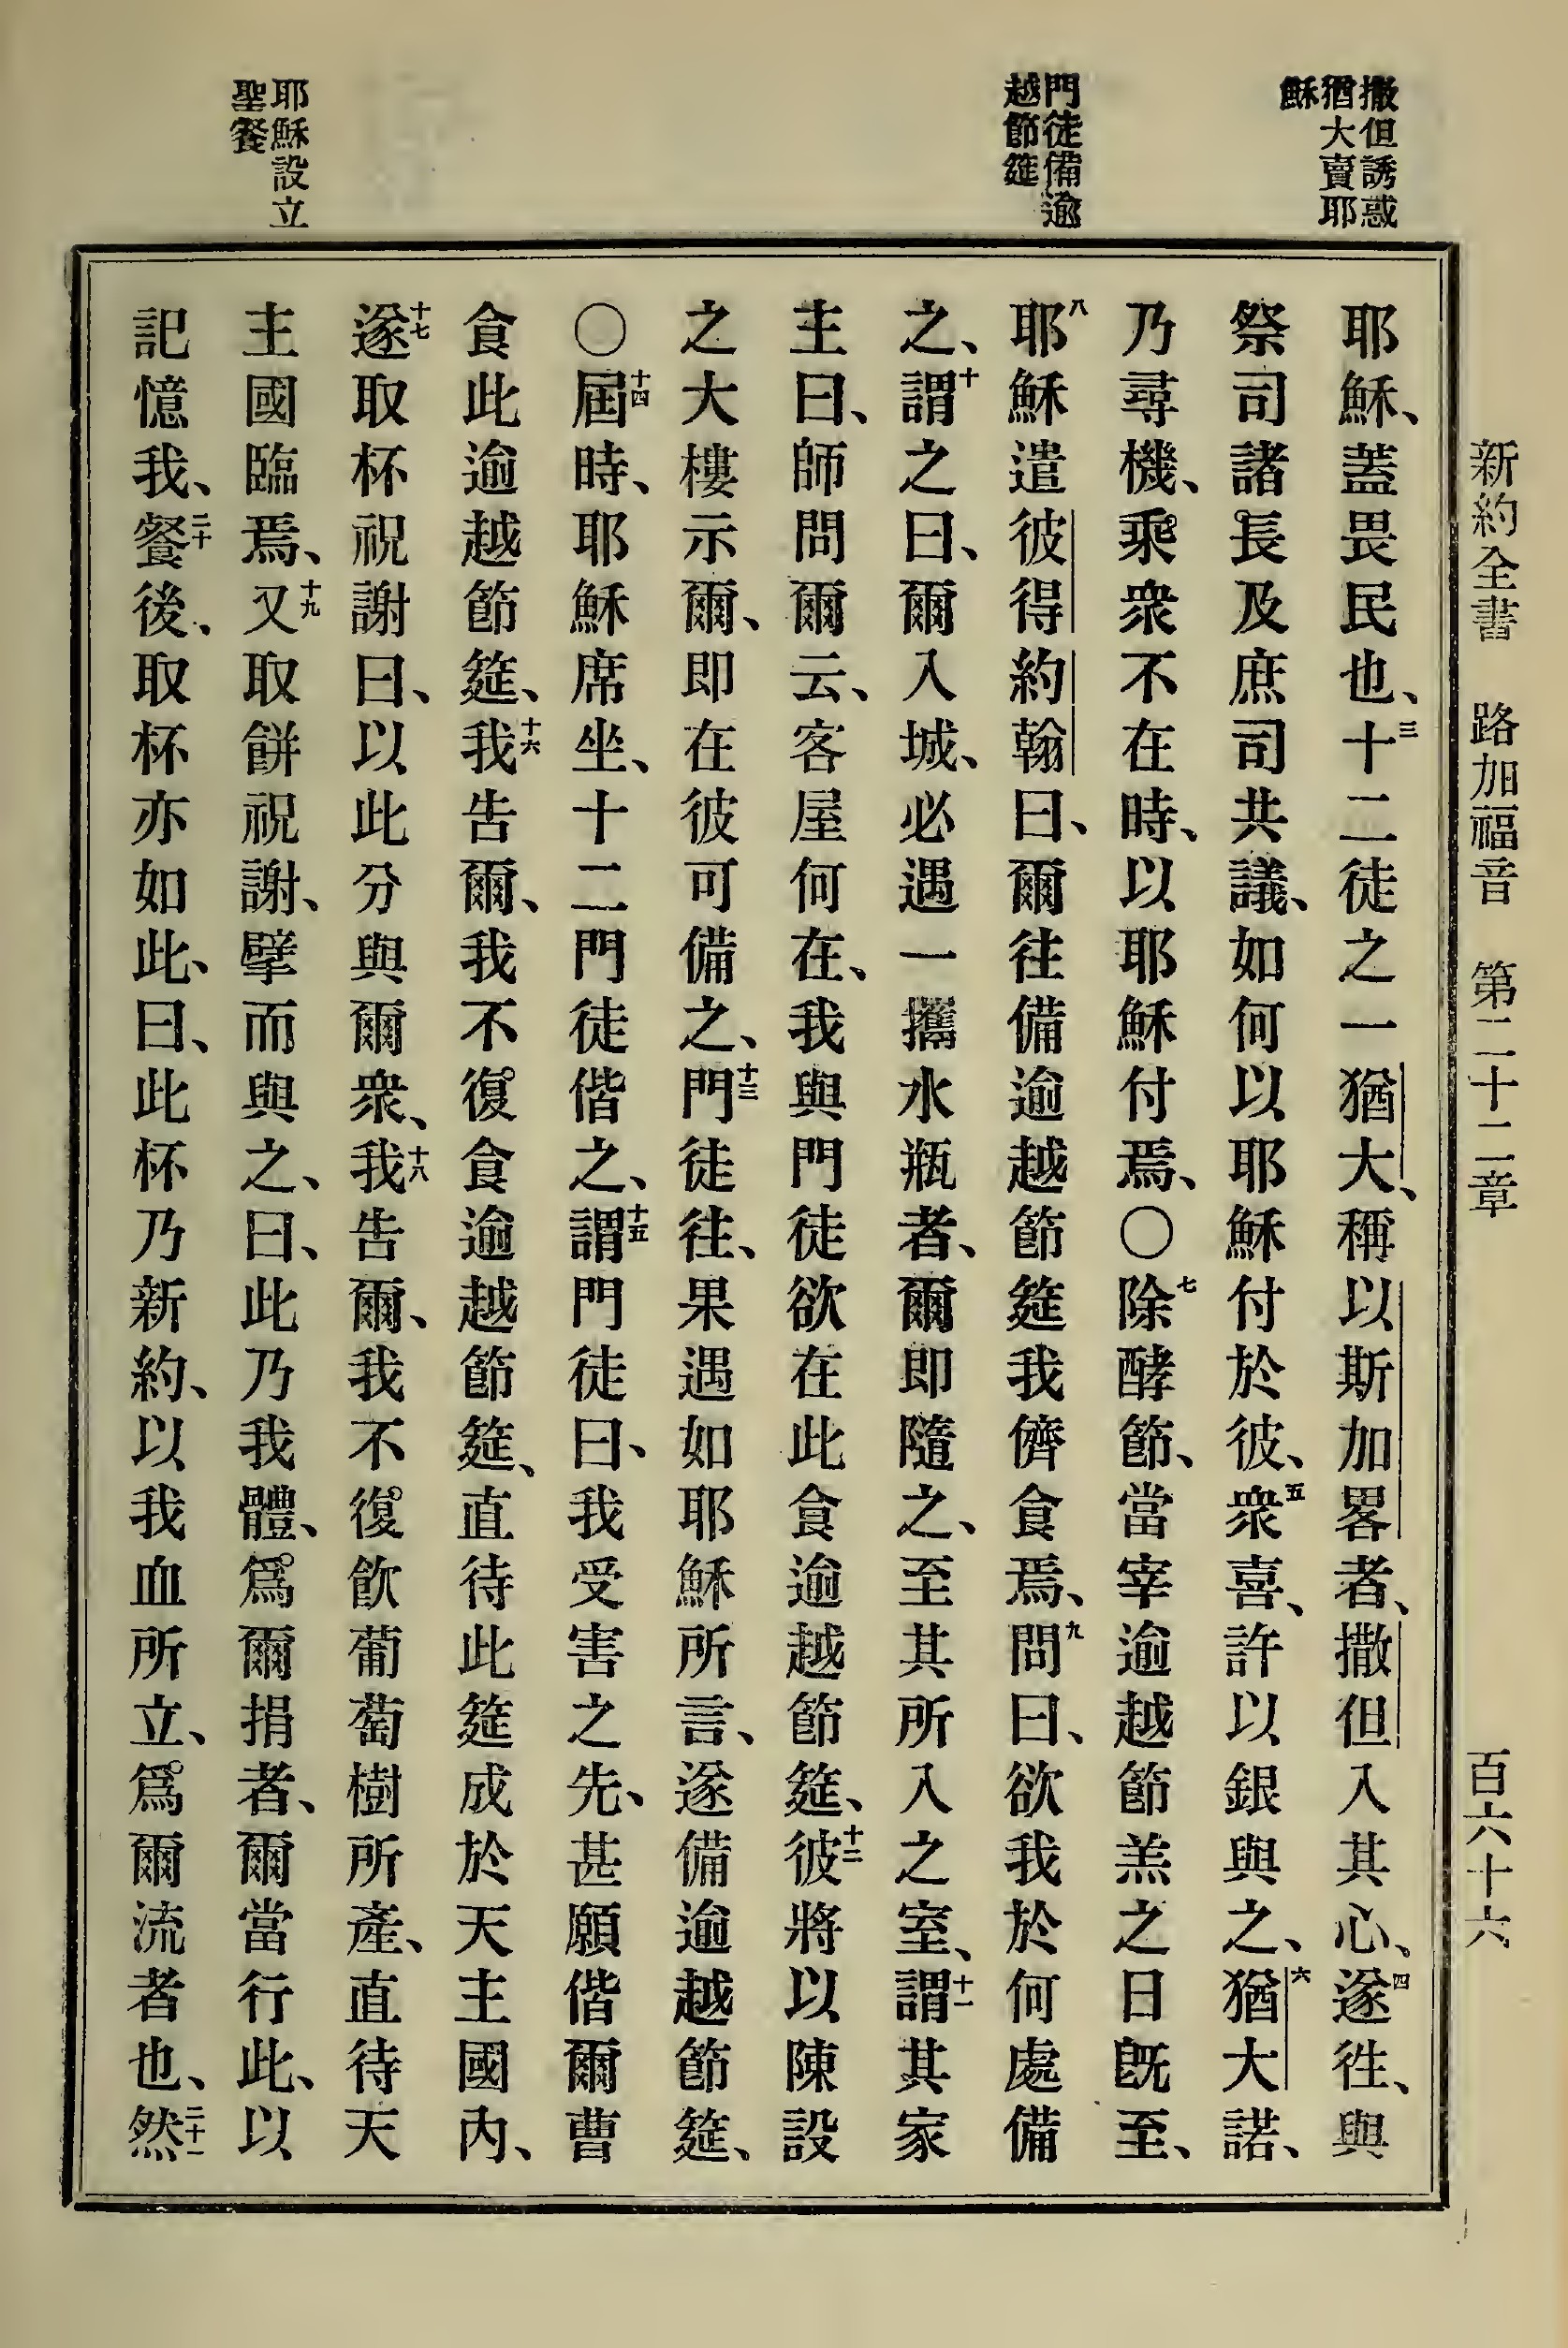 新約全書 路加福音 第二十二章 百六十六
撒但誘惑
猶大賣耶
穌
門徒備逾
越節筵
耶穌設立
聖餐
耶穌、蓋畏民也、三十二徒之一猶大、稱以斯加畧者、撒但入其心、四遂往、與
祭司諸長及庶司共議、如何以耶穌付於彼、五衆喜、許以銀與之、六猶大諾、
乃尋機、乘衆不在時、以耶穌付焉、〇七除酵節、當宰逾越節羔之日旣至、
八耶穌遣彼得約翰曰、爾往備逾越節筵我儕食焉、九問曰、欲我於何處備
之、十謂之曰、爾入城、必遇一攜水瓶者、爾即隨之、至其所入之室、十一謂其家
主曰、師問爾云、客屋何在、我與門徒欲在此食逾越節筵、十二彼將以陳設
之大樓示爾、即在彼可備之、十三門徒往、果遇如耶穌所言、遂備逾越節筵、
〇十四屆時、耶穌席坐、十二門徒偕之、十五謂門徒曰、我受害之先、甚願偕爾曹
食此逾越節筵、十六我告爾、我不復食逾越節筵、直待此筵成於天主國內、
十七遂取杯祝謝曰、以此分與爾衆、十八我告爾、我不復飲葡萄樹所產、直待天
主國臨焉、十九又取餅祝謝、擘而與之、曰、此乃我體、爲爾捐者、爾當行此、以
記憶我、二十餐後、取杯亦如此、曰、此杯乃新約、以我血所立、爲爾流者也、二十一然